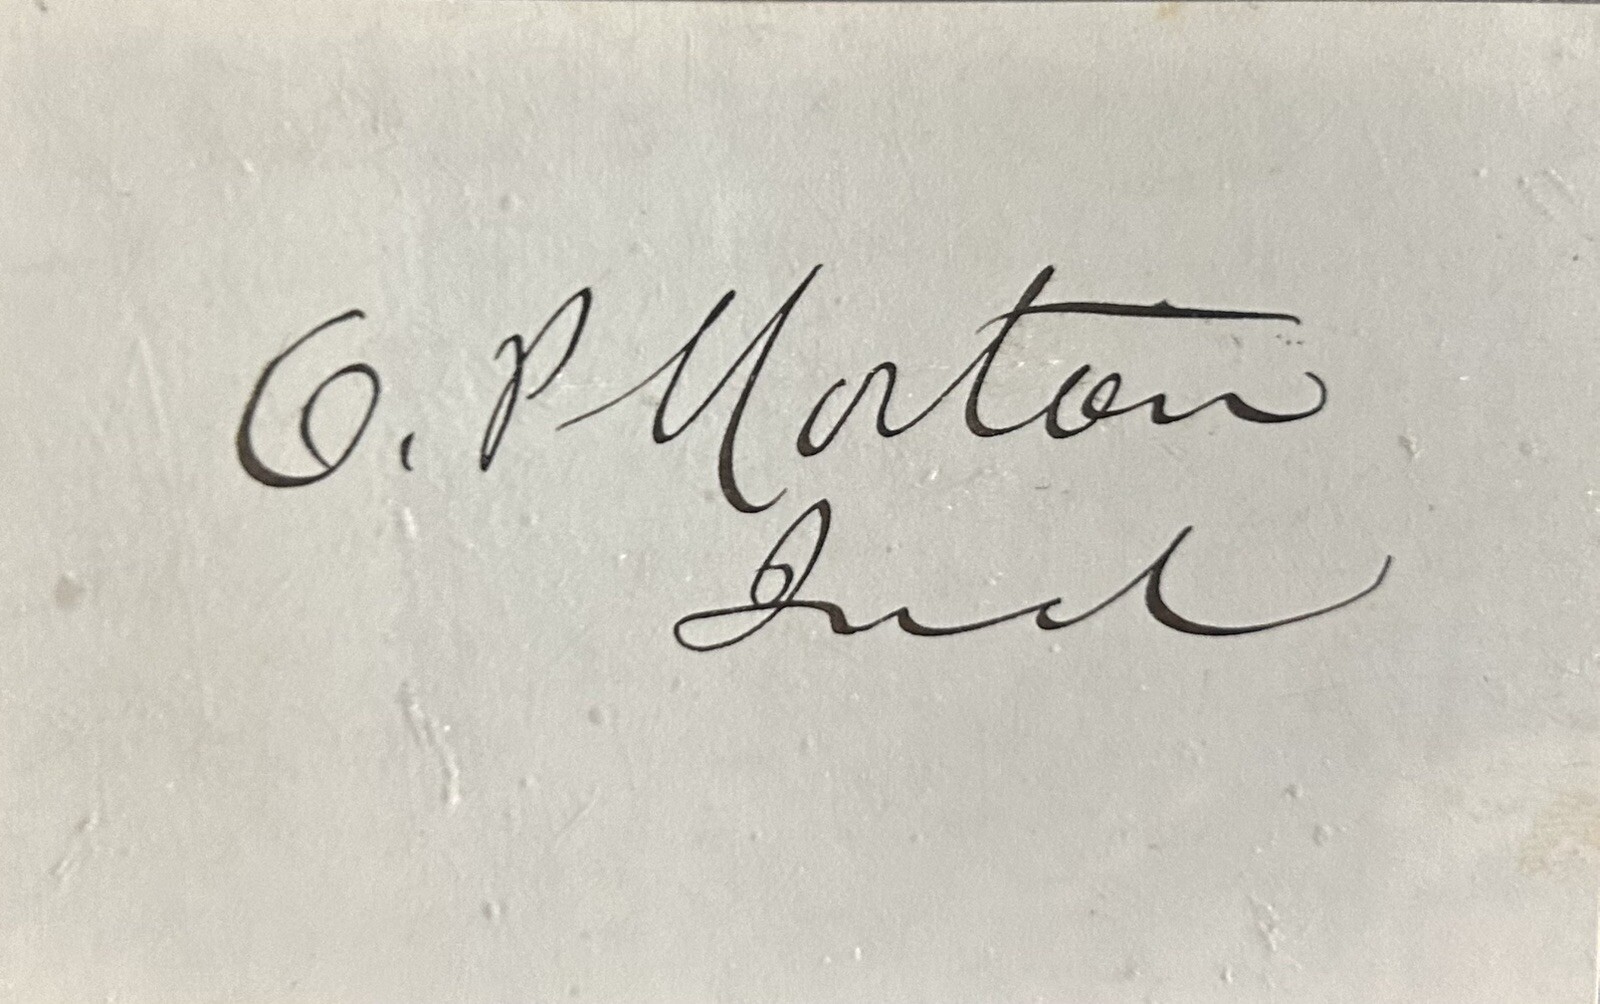 O. P Morton
Ind